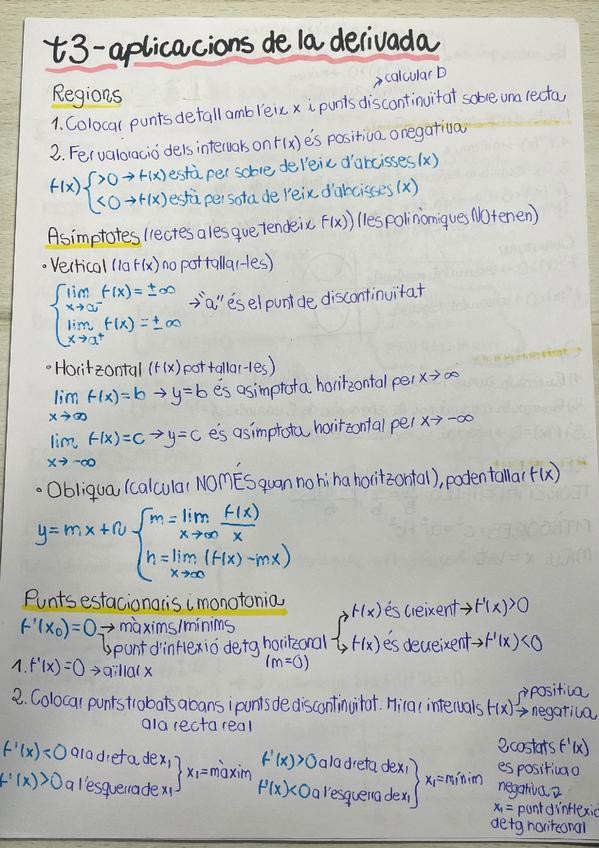 t3-aplicacions de la derivada
Regions
→calcular D
1. Colocar punts de tall amb l'eix x i punts discontinuitat sobre una recta
2. Fer valoració dels intervals on f(x) és positiva o negativa
f(x) { >0 → f(x) està per sobre de l'eix d'abcisses (x)
<0 → f(x) està per sota de l'eix d'abcisses (x)
Asímptotes (rectes a les que tendeix f(x)) (les polinòmiques NO tenen)
• Vertical (la f(x) no pot tallar-les)
{ lim x→a⁻ f(x) = ±∞
lim x→a⁺ f(x) = ±∞
→ "a" és el punt de discontinuïtat
• Horitzontal (f(x) pot tallar-les)
lim x→∞ f(x) = b → y=b és asímptota horitzontal per x→∞
lim x→-∞ f(x) = c → y=c és asímptota horitzontal per x→-∞
• Obliqua (calcular NOMÉS quan no hi ha horitzontal), poden tallar f(x)
y = mx + n { m = lim x→∞ f(x)/x
n = lim x→∞ (f(x) - mx)
Punts estacionaris i monotonia
f'(x₀) = 0 → màxims/mínims
↳ punt d'inflexió de tg horitzonal
(m=0)
f(x) és creixent → f'(x) > 0
f(x) és decreixent → f'(x) < 0
1. f'(x) = 0 → aïllar x
2. Colocar punts trobats abans i punts de discontinuitat. Mirar intervals f(x) → positiva
→ negativa
a la recta real
f'(x) < 0 a la dreta de x₁
f'(x) > 0 a l'esquerra de x₁
} x₁ = màxim
f'(x) > 0 a la dreta de x₁
f'(x) < 0 a l'esquerra de x₁
} x₁ = mínim
2 costats f'(x)
es positiva o
negativa
x₁ = punt d'inflexió
de tg horitzonal